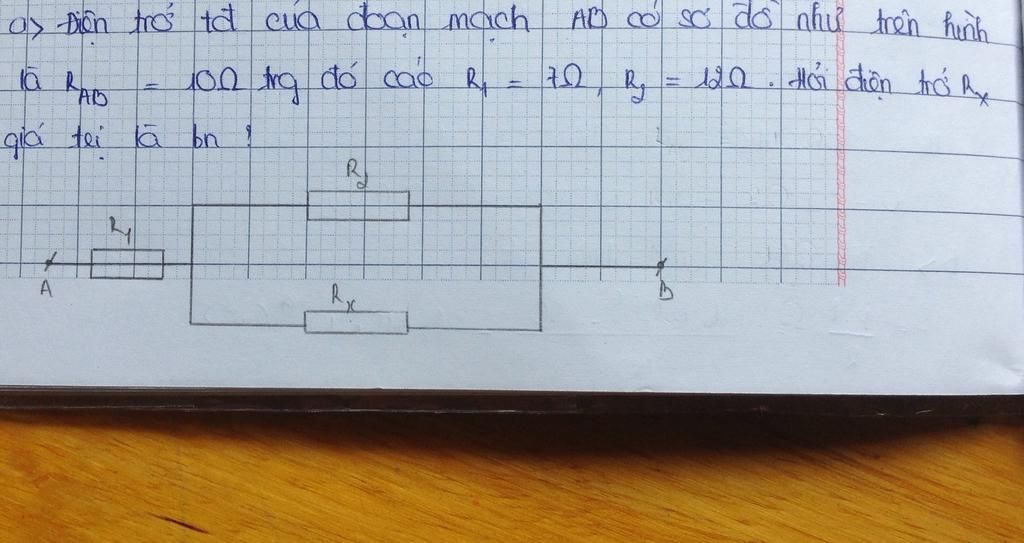 a> Điện trở tđ của đoạn mạch AB có sơ đồ như trên hình
là R_AB = 10Ω trg đó các R₁ = 7Ω, R₂ = 12Ω. Hỏi điện trở Rₓ
giá trị là bn ?
R₂
R₁
A
Rₓ
B